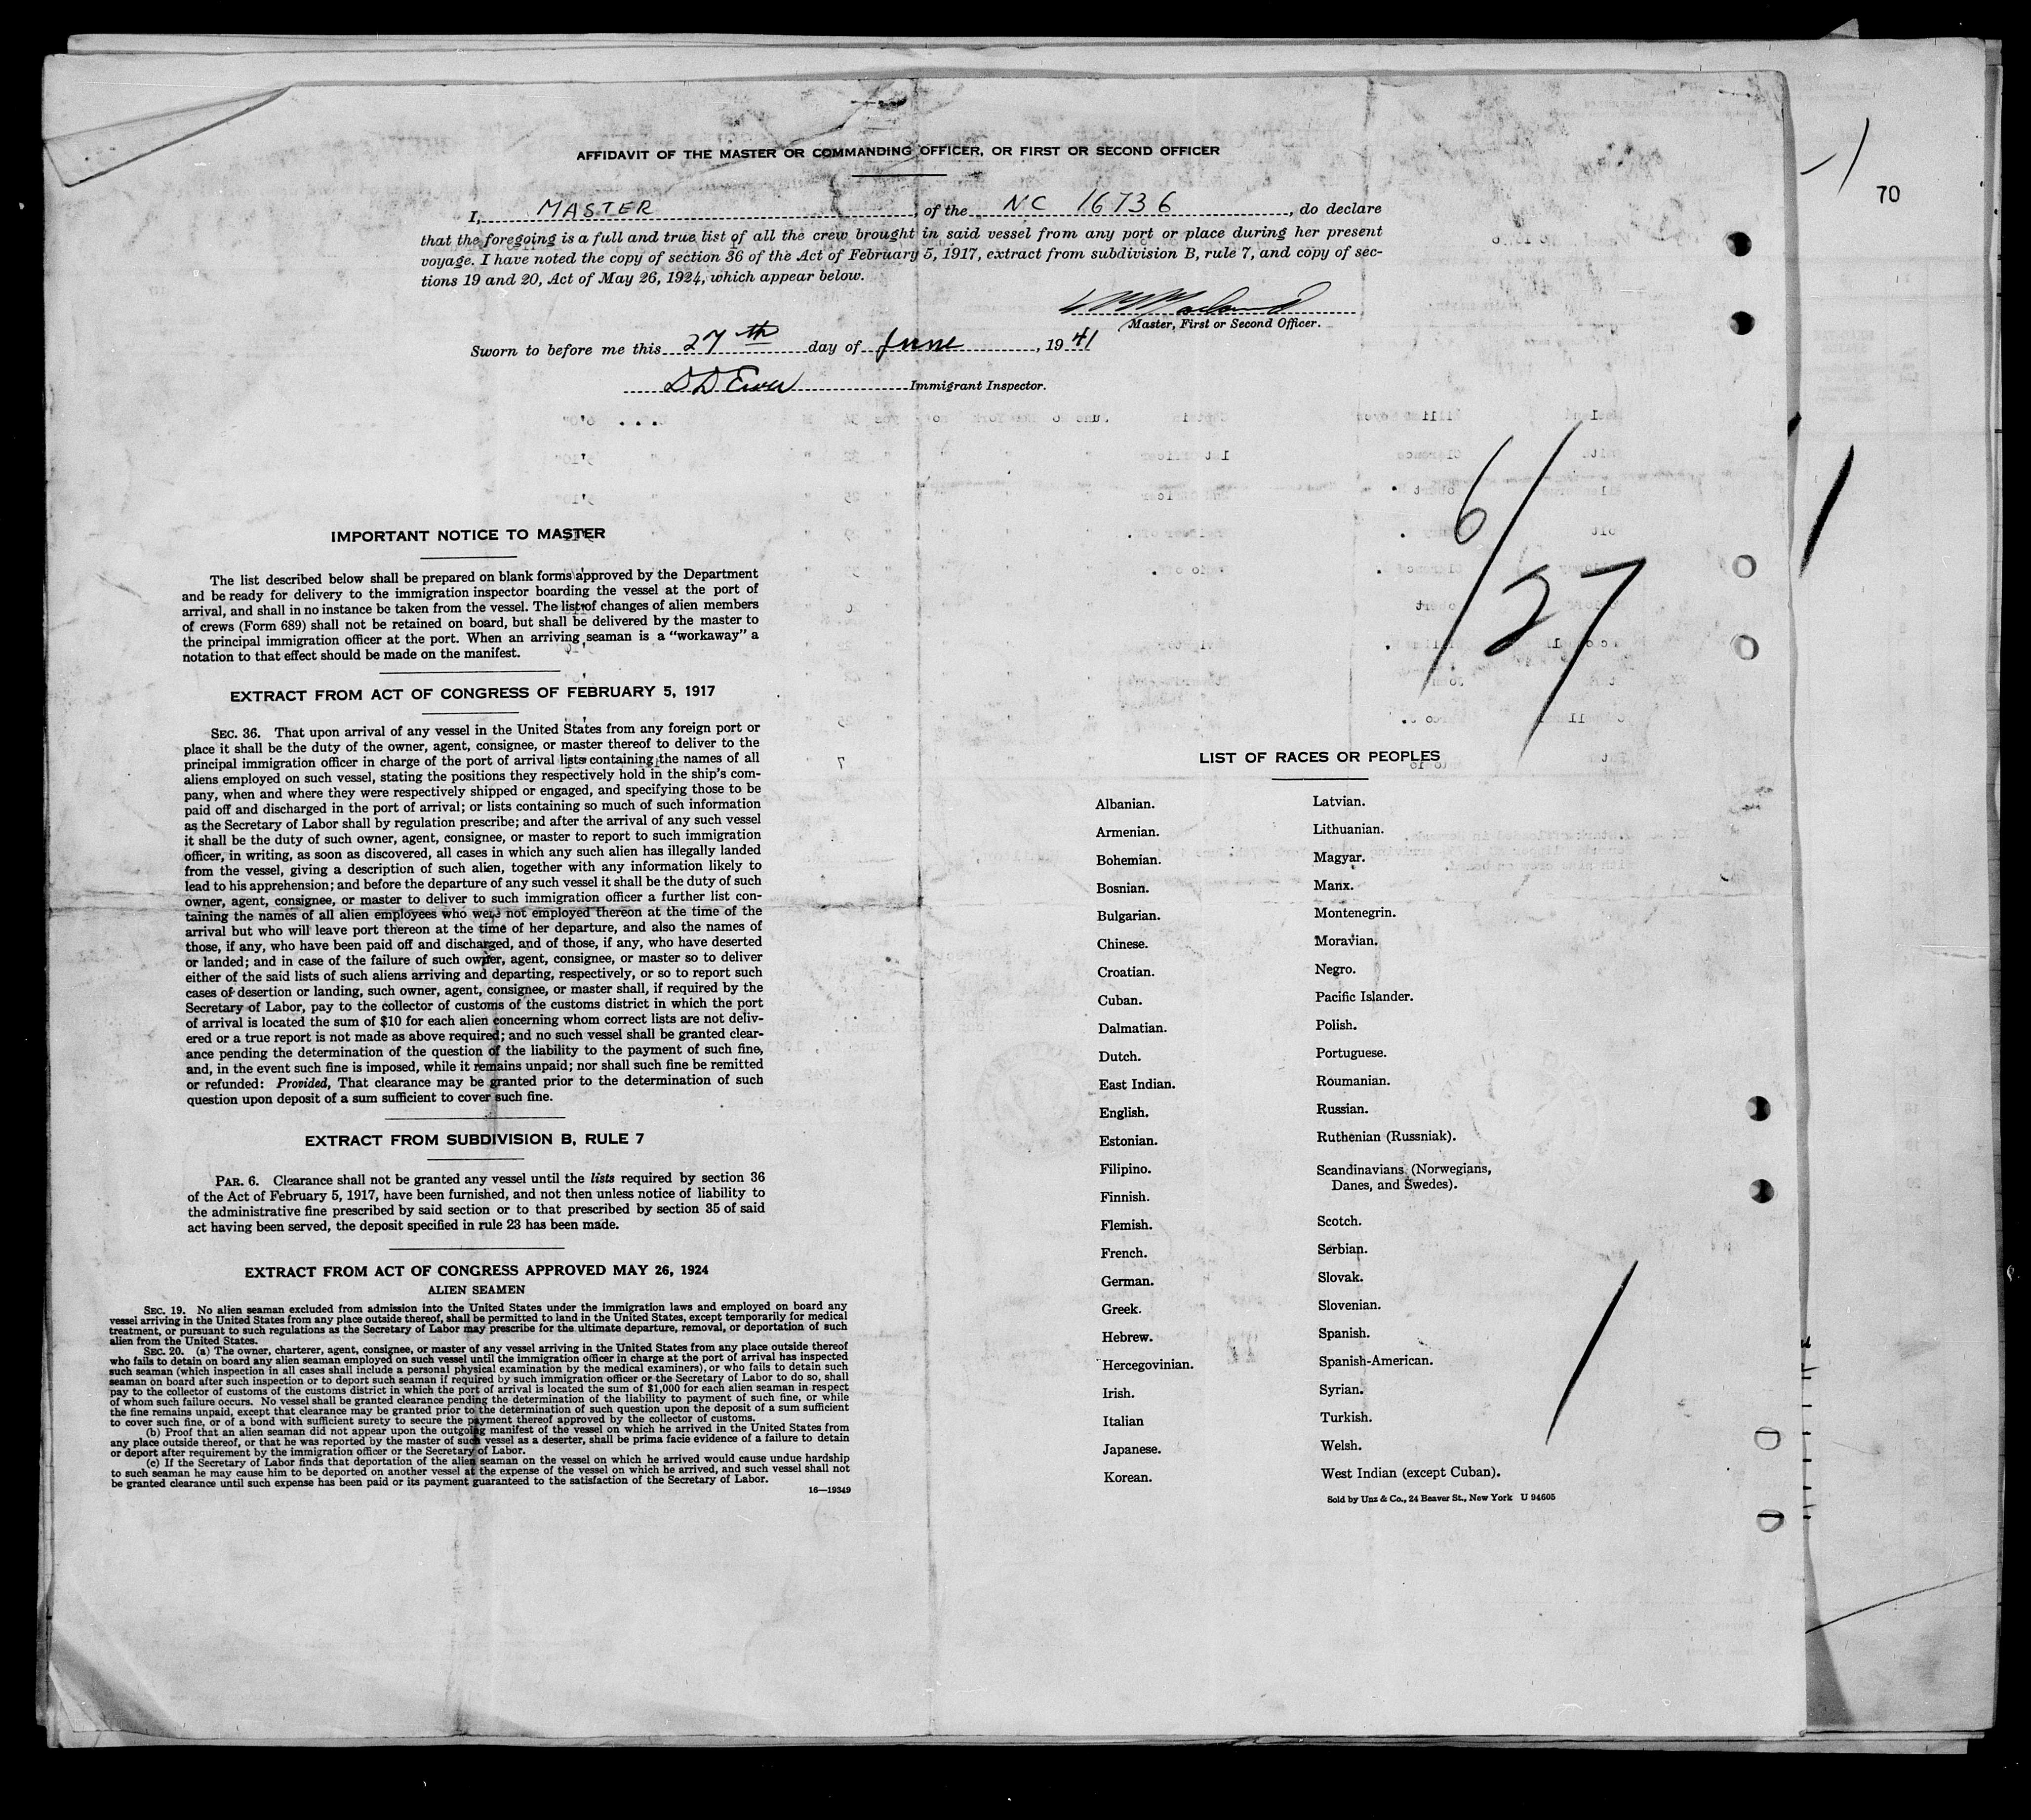 AFFIDAVIT OF THE MASTER OR COMMANDING OFFICER, OR FIRST OR SECOND OFFICER
I, MASTER, of the NC 16736, do declare
that the foregoing is a full and true list of all the crew brought in said vessel from any port or place during her present
voyage. I have noted the copy of section 36 of the Act of February 5, 1917, extract from subdivision B, rule 7, and copy of sec-
tions 19 and 20, Act of May 26, 1924, which appear below.
Master, First or Second Officer.
Sworn to before me this 27th day of June, 1941
Immigrant Inspector.
70
6/27
IMPORTANT NOTICE TO MASTER
The list described below shall be prepared on blank forms approved by the Department
and be ready for delivery to the immigration inspector boarding the vessel at the port of
arrival, and shall in no instance be taken from the vessel. The list of changes of alien members
of crews (Form 689) shall not be retained on board, but shall be delivered by the master to
the principal immigration officer at the port. When an arriving seaman is a "workaway" a
notation to that effect should be made on the manifest.
EXTRACT FROM ACT OF CONGRESS OF FEBRUARY 5, 1917
SEC. 36. That upon arrival of any vessel in the United States from any foreign port or
place it shall be the duty of the owner, agent, consignee, or master thereof to deliver to the
principal immigration officer in charge of the port of arrival lists containing the names of all
aliens employed on such vessel, stating the positions they respectively hold in the ship's com-
pany, when and where they were respectively shipped or engaged, and specifying those to be
paid off and discharged in the port of arrival; or lists containing so much of such information
as the Secretary of Labor shall by regulation prescribe; and after the arrival of any such vessel
it shall be the duty of such owner, agent, consignee, or master to report to such immigration
officer, in writing, as soon as discovered, all cases in which any such alien has illegally landed
from the vessel, giving a description of such alien, together with any information likely to
lead to his apprehension; and before the departure of any such vessel it shall be the duty of such
owner, agent, consignee, or master to deliver to such immigration officer a further list con-
taining the names of all alien employees who were not employed thereon at the time of the
arrival but who will leave port thereon at the time of her departure, and also the names of
those, if any, who have been paid off and discharged, and of those, if any, who have deserted
or landed; and in case of the failure of such owner, agent, consignee, or master so to deliver
either of the said lists of such aliens arriving and departing, respectively, or so to report such
cases of desertion or landing, such owner, agent, consignee, or master shall, if required by the
Secretary of Labor, pay to the collector of customs of the customs district in which the port
of arrival is located the sum of $10 for each alien concerning whom correct lists are not deliv-
ered or a true report is not made as above required; and no such vessel shall be granted clear-
ance pending the determination of the question of the liability to the payment of such fine,
and, in the event such fine is imposed, while it remains unpaid; nor shall such fine be remitted
or refunded: Provided, That clearance may be granted prior to the determination of such
question upon deposit of a sum sufficient to cover such fine.
EXTRACT FROM SUBDIVISION B, RULE 7
PAR. 6. Clearance shall not be granted any vessel until the lists required by section 36
of the Act of February 5, 1917, have been furnished, and not then unless notice of liability to
the administrative fine prescribed by said section or to that prescribed by section 35 of said
act having been served, the deposit specified in rule 23 has been made.
EXTRACT FROM ACT OF CONGRESS APPROVED MAY 26, 1924
ALIEN SEAMEN
SEC. 19. No alien seaman excluded from admission into the United States under the immigration laws and employed on board any
vessel arriving in the United States from any place outside thereof, shall be permitted to land in the United States, except temporarily for medical
treatment, or pursuant to such regulations as the Secretary of Labor may prescribe for the ultimate departure, removal, or deportation of such
alien from the United States.
SEC. 20. (a) The owner, charterer, agent, consignee, or master of any vessel arriving in the United States from any place outside thereof
who fails to detain on board any alien seaman employed on such vessel until the immigration officer in charge at the port of arrival has inspected
such seaman (which inspection in all cases shall include a personal physical examination by the medical examiners), or who fails to detain such
seaman on board after such inspection or to deport such seaman if required by such immigration officer or the Secretary of Labor to do so, shall
pay to the collector of customs of the customs district in which the port of arrival is located the sum of $1,000 for each alien seaman in respect
of whom such failure occurs. No vessel shall be granted clearance pending the determination of the liability to payment of such fine, or while
the fine remains unpaid, except that clearance may be granted prior to the determination of such question upon the deposit of a sum sufficient
to cover such fine, or of a bond with sufficient surety to secure the payment thereof approved by the collector of customs.
(b) Proof that an alien seaman did not appear upon the outgoing manifest of the vessel on which he arrived in the United States from
any place outside thereof, or that he was reported by the master of such vessel as a deserter, shall be prima facie evidence of a failure to detain
or deport after requirement by the immigration officer or the Secretary of Labor.
(c) If the Secretary of Labor finds that deportation of the alien seaman on the vessel on which he arrived would cause undue hardship
to such seaman he may cause him to be deported on another vessel at the expense of the vessel on which he arrived, and such vessel shall not
be granted clearance until such expense has been paid or its payment guaranteed to the satisfaction of the Secretary of Labor.
16—19349
LIST OF RACES OR PEOPLES
Albanian.
Armenian.
Bohemian.
Bosnian.
Bulgarian.
Chinese.
Croatian.
Cuban.
Dalmatian.
Dutch.
East Indian.
English.
Estonian.
Filipino.
Finnish.
Flemish.
French.
German.
Greek.
Hebrew.
Hercegovinian.
Irish.
Italian
Japanese.
Korean.
Latvian.
Lithuanian.
Magyar.
Manx.
Montenegrin.
Moravian.
Negro.
Pacific Islander.
Polish.
Portuguese.
Roumanian.
Russian.
Ruthenian (Russniak).
Scandinavians (Norwegians,
Danes, and Swedes).
Scotch.
Serbian.
Slovak.
Slovenian.
Spanish.
Spanish-American.
Syrian.
Turkish.
Welsh.
West Indian (except Cuban).
Sold by Unz & Co., 24 Beaver St., New York U 94605